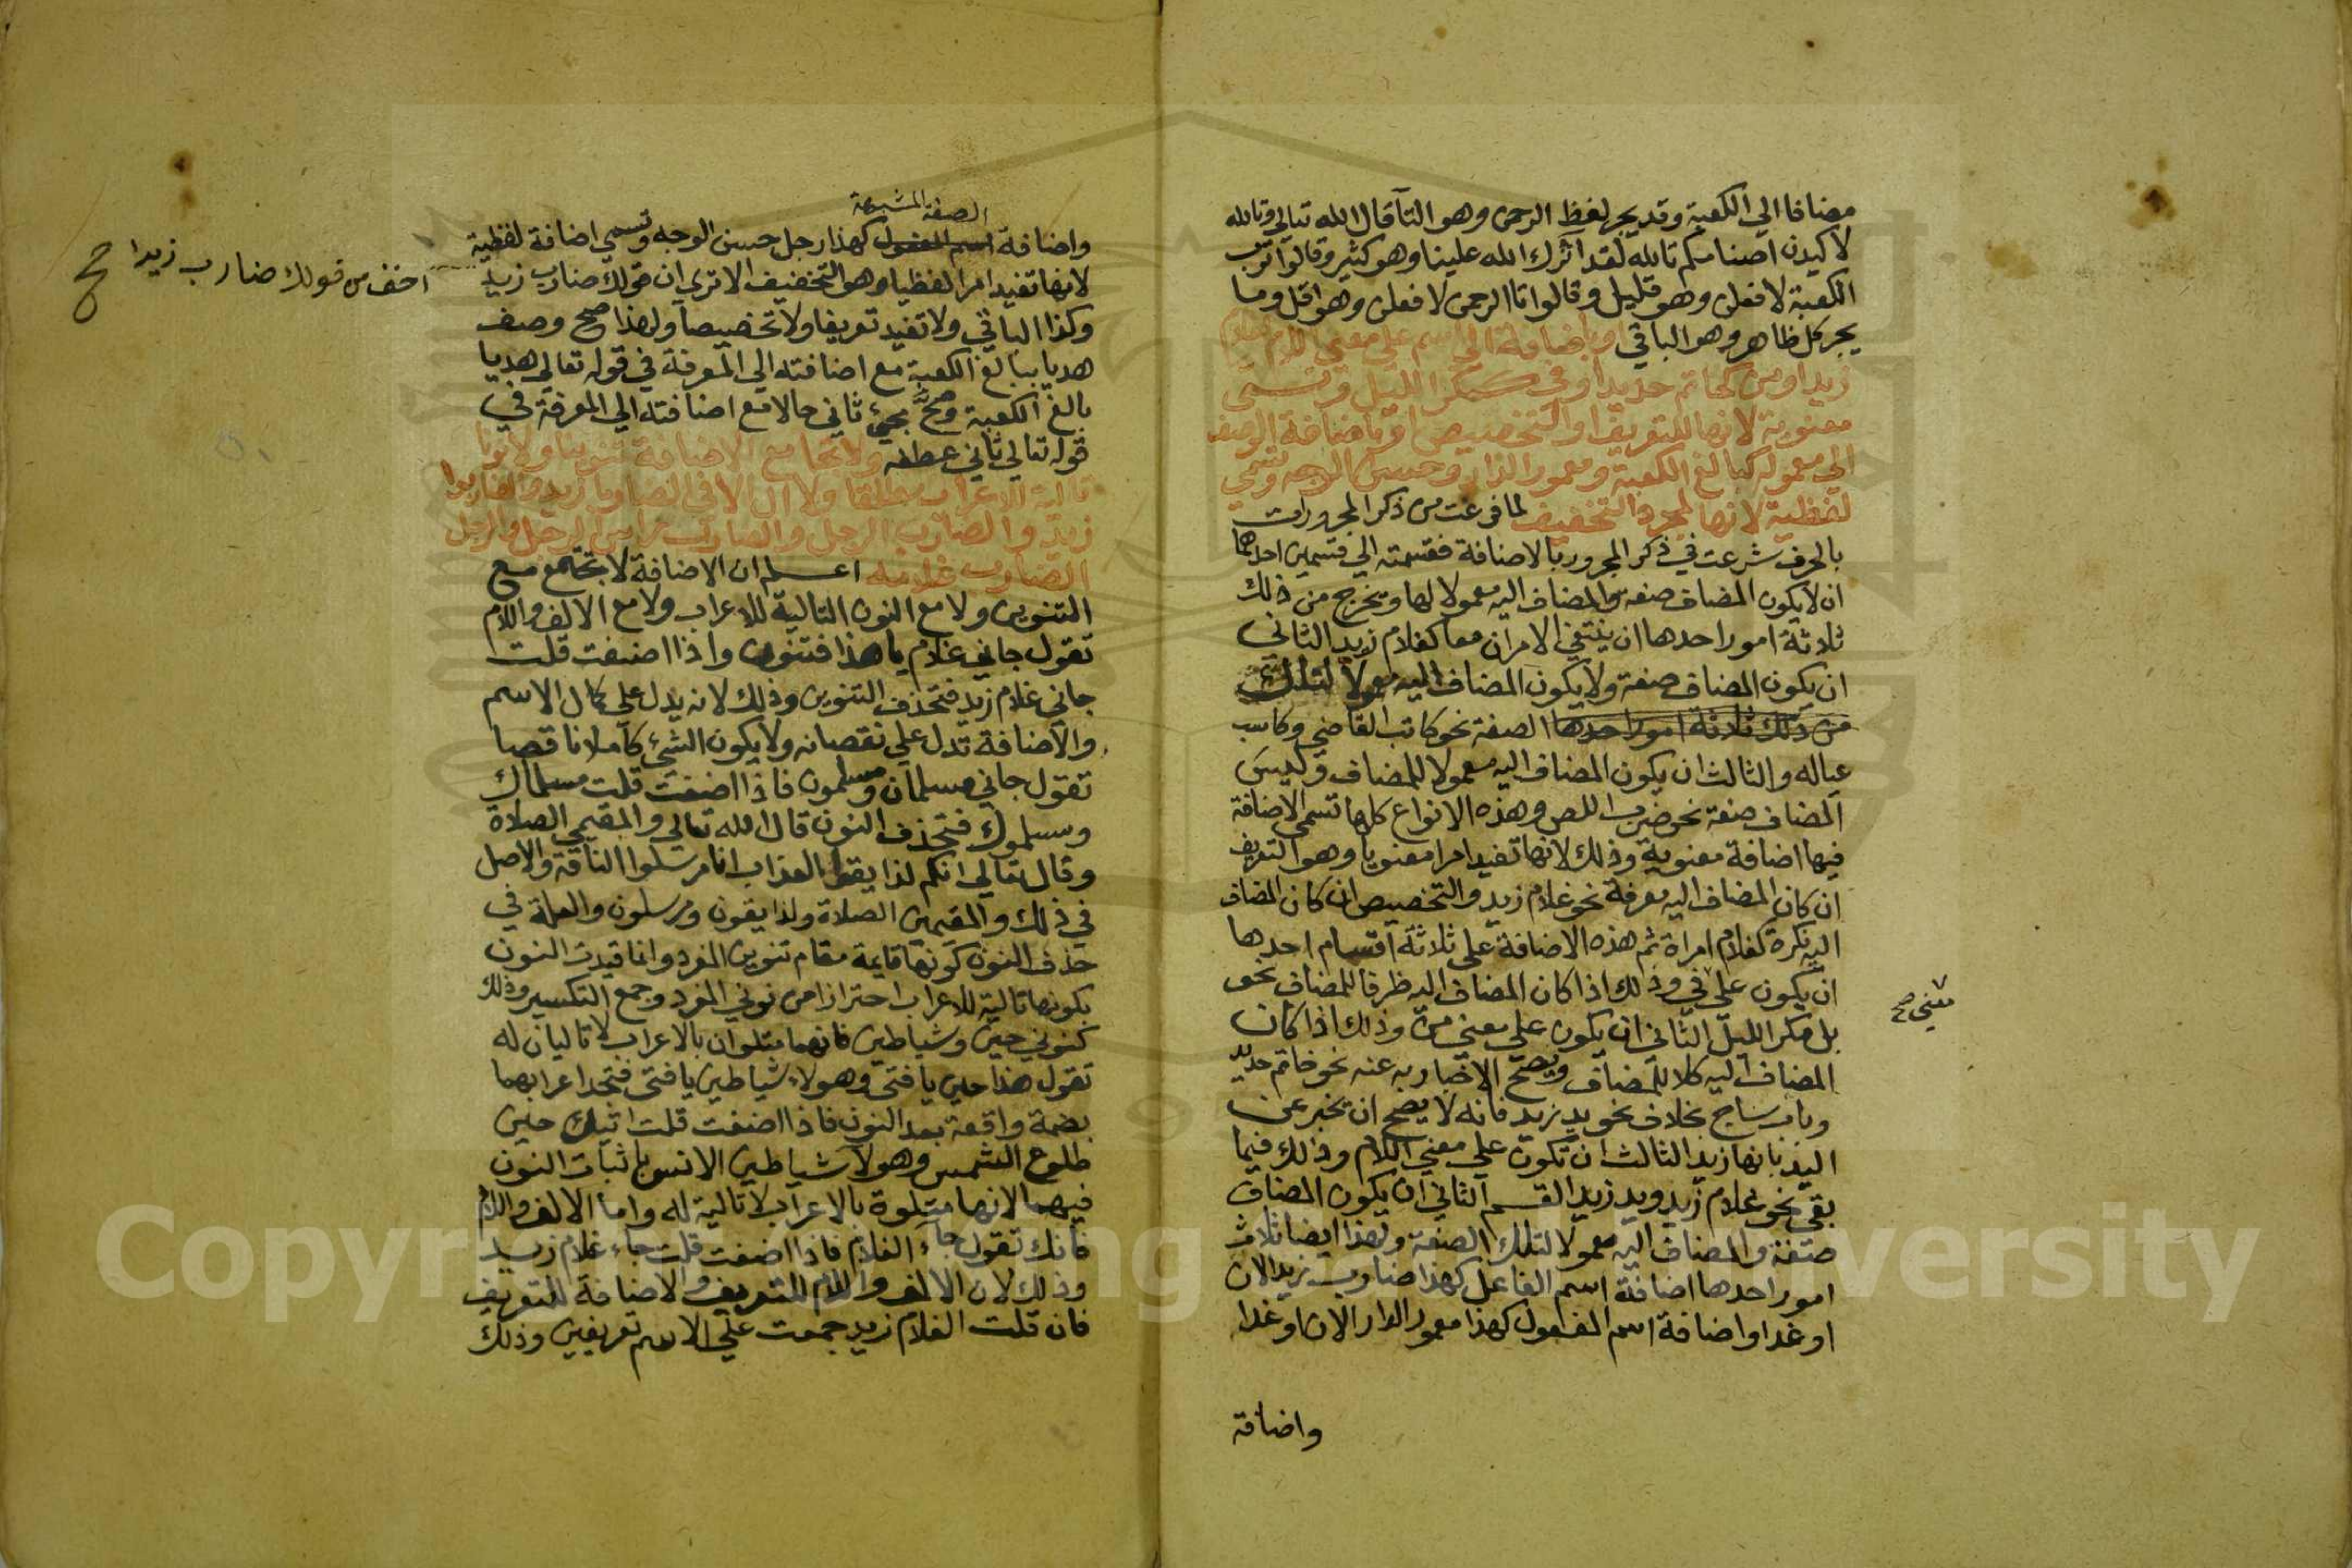 مضافا الي الكعبة وقد يجر لفظ الرحمن وهو التا قال الله تعالي وتالله
لاكيدن اصنامكم تالله لقد اثرك الله علينا وهو كثير وقالوا ترب
الكعبة لافعلن وهو قليل وقالوا تا الرحمن لافعلن وهو اقل وما
يجر كل ظاهر وهو الباقي او باضافة الي اسم علي معني اللام كغلام
زيد او من كخاتم حديد او في كمكر الليل وتسمي
معنوية لانها للتعريف او التخصيص او باضافة الوصف
الي معموله كبالغ الكعبة ومعمور الدار وحسن الوجه وتسمي
لفظية لانها لمجرد التخفيف لما فرغت من ذكر المجرورات
بالحرف شرعت في ذكر المجرور بالاضافة فقسمته الي قسمين احدهما
ان لا يكون المضاف صفة والمضاف اليه معمولا لها ويخرج من ذلك
ثلاثة امور احدها ان ينتفي الامران معا كغلام زيد الثاني
ان يكون المضاف صفة ولا يكون المضاف اليه معمولا لتلك
من ذلك ثلاثة امور احدها الصفة نحو كاتب القاضي وكاسب
عياله والثالث ان يكون المضاف اليه معمولا للمضاف وليس
المضاف صفة نحو ضرب اللص وهذه الانواع كلها تسمي الاضافة
فيها اضافة معنوية وذلك لانها تفيد امرا معنويا وهو التعريف
ان كان المضاف اليه معرفة نحو غلام زيد والتخصيص ان كان المضاف
اليه نكرة كغلام امراة ثم هذه الاضافة علي ثلاثة اقسام احدها
ان يكون علي في وذلك اذا كان المضاف اليه ظرفا للمضاف نحو
معني صح
بل مكر الليل الثاني ان يكون علي معني من وذلك اذا كان
المضاف اليه كلا للمضاف ويصح الاخبار به عنه نحو خاتم حديد
وباب ساج بخلاف نحو يد زيد فانه لا يصح ان يخبر عن
اليد بانها زيد الثالث ان تكون علي معني اللام وذلك فيما
بقي نحو غلام زيد ويد زيد القسم الثاني ان يكون المضاف
صفة والمضاف اليه معمولا لتلك الصفة ولهذا ايضا ثلاث
امور احدها اضافة اسم الفاعل كهذا ضارب زيد الان
او غدا واضافة اسم المفعول كهذا معمور الدار الان او غدا
واضافة
الصفة المشبهة
واضافة اسم المفعول كهذا رجل حسن الوجه وتسمي اضافة لفظية
لانها تفيد امرا لفظيا وهو التخفيف الا تري ان قولك ضارب زيد
اخف من قولك ضارب زيدا صح
وكذا الباقي ولا تفيد تعريفا ولا تخصيصا ولهذا صح وصف
هديا ببالغ الكعبة مع اضافته الي المعرفة في قوله تعالي هديا
بالغ الكعبة وصح مجي ثاني حالا مع اضافته الي المعرفة في
قوله تعالي ثاني عطفه ولا تجامع الاضافة تنوينا ولا نونا
تالية للاعراب مطلقا ولا ال الا في الضاربا زيد والضاربوا
زيد والضارب الرجل والضارب راس الرجل والرجل
الضارب غلامه اعلم ان الاضافة لا تجتمع مع
التنوين ولا مع النون التالية للاعراب ولا مع الالف واللام
تقول جاني غلام يا هذا فتنون واذا اضفت قلت
جاني غلام زيد فتحذف التنوين وذلك لانه يدل علي كمال الاسم
والاضافة تدل علي نقصانه ولا يكون الشي كاملا ناقصا
تقول جاني مسلمان ومسلمون فاذا اضفت قلت مسلماك
ومسلموك فتحذف النون قال الله تعالي والمقيمي الصلاة
وقال تعالي انكم لذايقوا العذاب انا مرسلوا الناقة والاصل
في ذلك والمقيمين الصلاة ولذايقون ومرسلون والعلة في
حذف النون كونها قايمة مقام تنوين المفرد وانما قيدت النون
بكونها تالية للاعراب احترازا من نوني المفرد وجمع التكسير وذلك
كنوني حين وشياطين فانهما متلوان بالاعراب لا تاليان له
تقول هذا حين يا فتي وهولاء شياطين يا فتي فتجد اعرابهما
بضمة واقعة بعد النون فاذا اضفت قلت اتيك حين
طلوع الشمس وهولا شياطين الانس باثبات النون
فيهما لانها متلوة بالاعراب لا تالية له واما الالف واللام
فانك تقول جاء الغلام فاذا اضفت قلت جاء غلام زيد
وذلك لان الالف واللام للتعريف والاضافة للتعريف
فان قلت الغلام زيد جمعت علي الاسم تعريفين وذلك